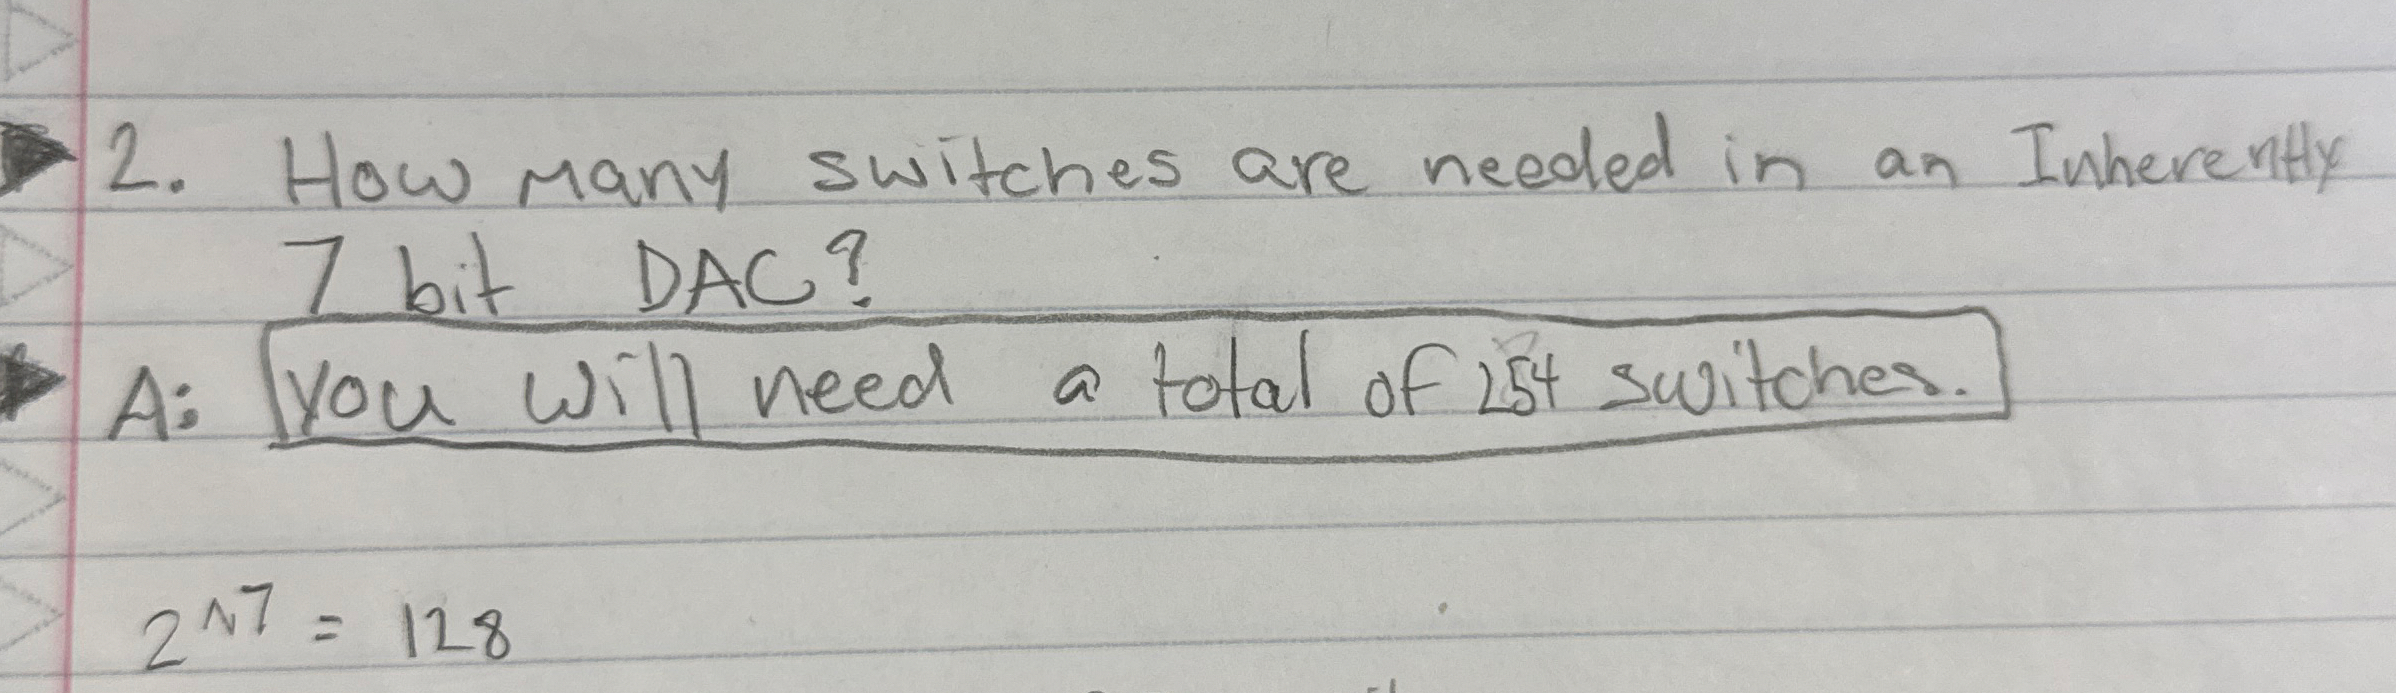 2. How many switches are needed in an Inherently
7 bit DAC?
A: you will need a total of 254 switches.
2^7 = 128